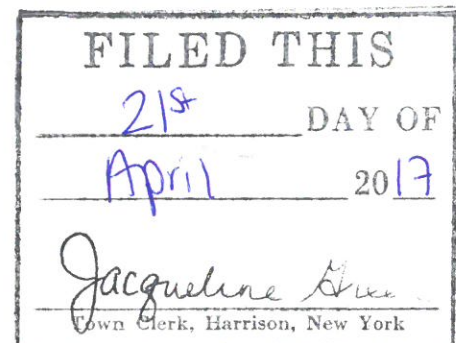 FILED THIS
21st DAY OF
April 2017
Jacqueline
Town Clerk, Harrison, New York